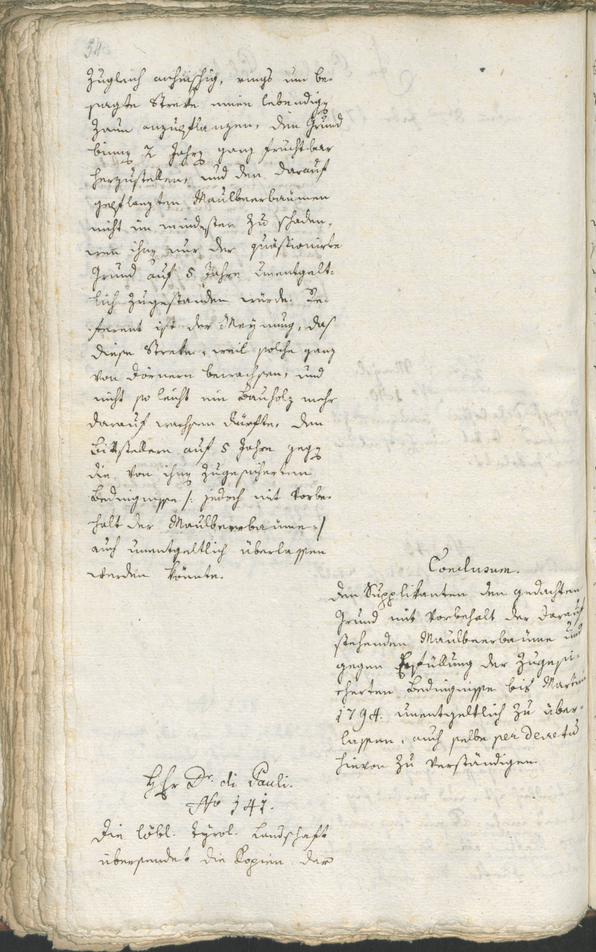 54
zugleich anheischig, rings um be-
sagte Strecke einen lebendigen
Zaun anzupflanzen, den Grund
binnen 2 Jahren ganz fruchtbar
herzustellen, und den darauf
gepflanzten Maulbeerbäumen
nicht im mindesten zu schaden,
wen ihnen nur der quästionirte
Grund auf 5 Jahre unentgelt-
lich zugestanden würde. Re-
ferent ist der Meynung, das
diese Strecke, weil solche ganz
von Dörnern bewachsen, und
nicht so leicht ein Bauholz mehr
darauf wachsen dürfte, den
Bittstellern auf 5 Jahre gegen
die von ihnen zugesicherten
Bedingnisse /: jedoch mit Vorbe-
halt der Maulbeerbäume :/
auch unentgeltlich überlassen
werden könnte.
Conclusum.
den Supplikanten den gedachten
Grund mit Vorbehalt der darauf
stehenden Maulbeerbäume und
gegen Erfüllung der zugesi-
cherten Bedingnisse bis Martini
1794. unentgeltlich zu über-
lassen, auch selbe per decretum
hievon zu verständigen.
Hr Dr. di Pauli.
No 141.
Die löbl. Tyrol. Landschaft
übersendet die Kopien der